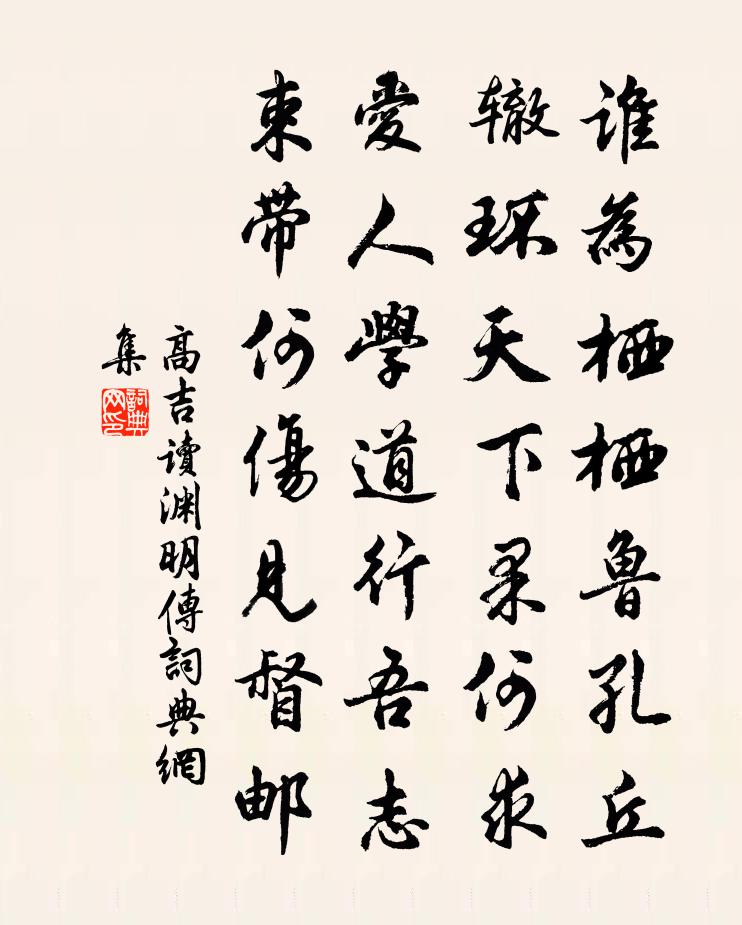 谁為栖栖魯孔丘
辙环天下果何求
愛人學道行吾志
束带何傷見督邮
高吉讀渊明傳詞典網
集
詞典
网印